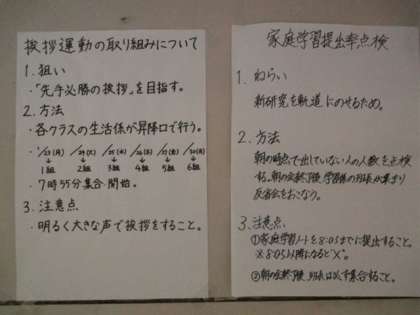 挨拶運動の取り組みについて
1.狙い
・「先手必勝の挨拶」を目指す。
2.方法
・各クラスの生活係が昇降口で行う。
(月) (火) (水) (木) (金) (月)
↓ ↓ ↓ ↓ ↓ ↓
1組 2組 3組 4組 5組 6組
・7時55分集合 開始。
3.注意点
・明るく大きな声で挨拶をすること。
家庭学習提出率点検
1.ねらい
新研究を軌道にのせるため。
2.方法
朝の時点で出していない人の人数を点検
する。朝の会終了後、学習係の班長が集まり
反省会をおこなう。
3.注意点
①家庭学習ノートを8:05までに提出すること。
※8:05以降になると"×"。
②朝の会終了後、班長は必ず集合すること。